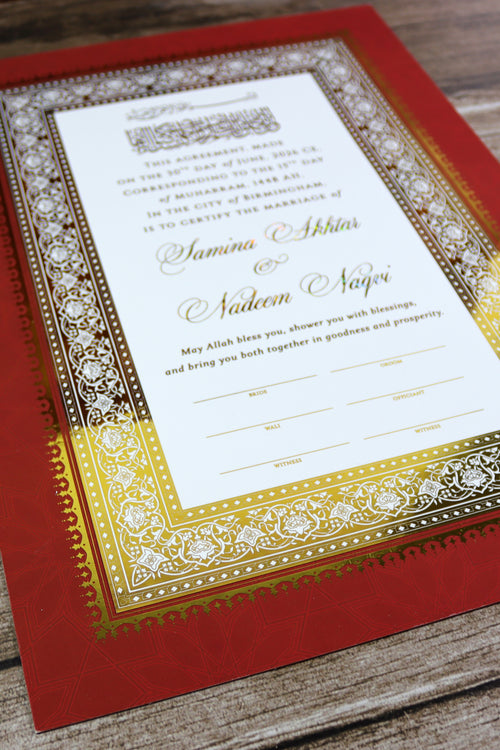 THIS AGREEMENT, MADE
ON THE 30TH DAY of JUNE, 2026 CE,
CORRESPONDING TO THE 15TH DAY
of MUHARRAM, 1448 AH,
IN THE CITY of BIRMINGHAM,
IS TO CERTIFY THE MARRIAGE of
Samina Akhtar
&
Nadeem Naqvi
May Allah bless you, shower you with blessings,
and bring you both together in goodness and prosperity.
BRIDE GROOM
WALI OFFICIANT
WITNESS WITNESS